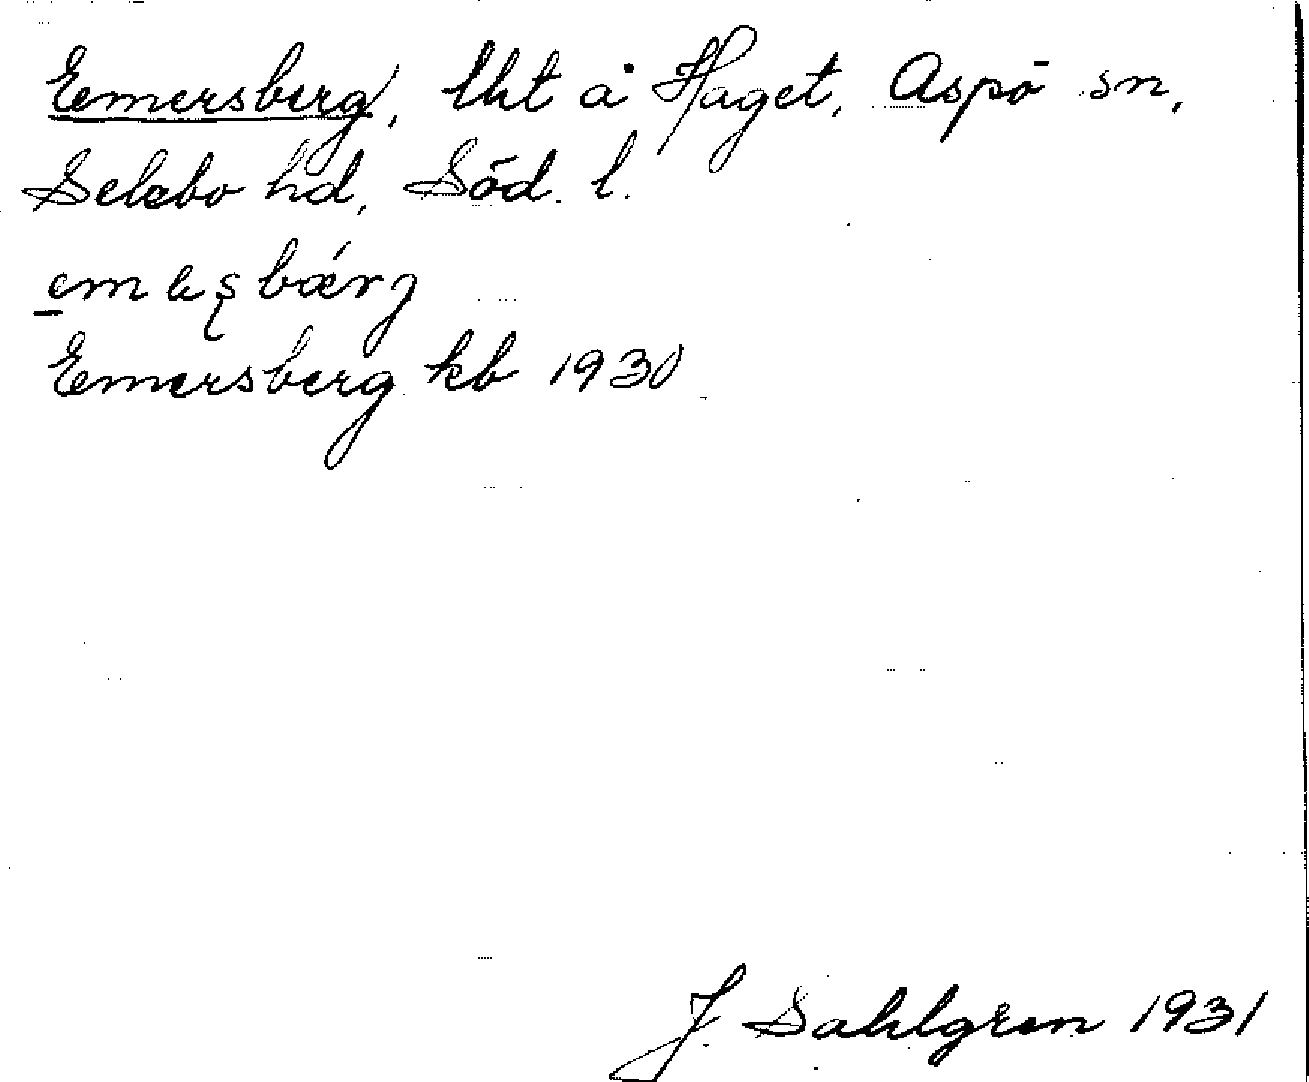 Emersberg, lht å Haget, Aspö sn,
Selebo hd, Söd. l.
Emersberg kb 1930
J Sahlgren 1931